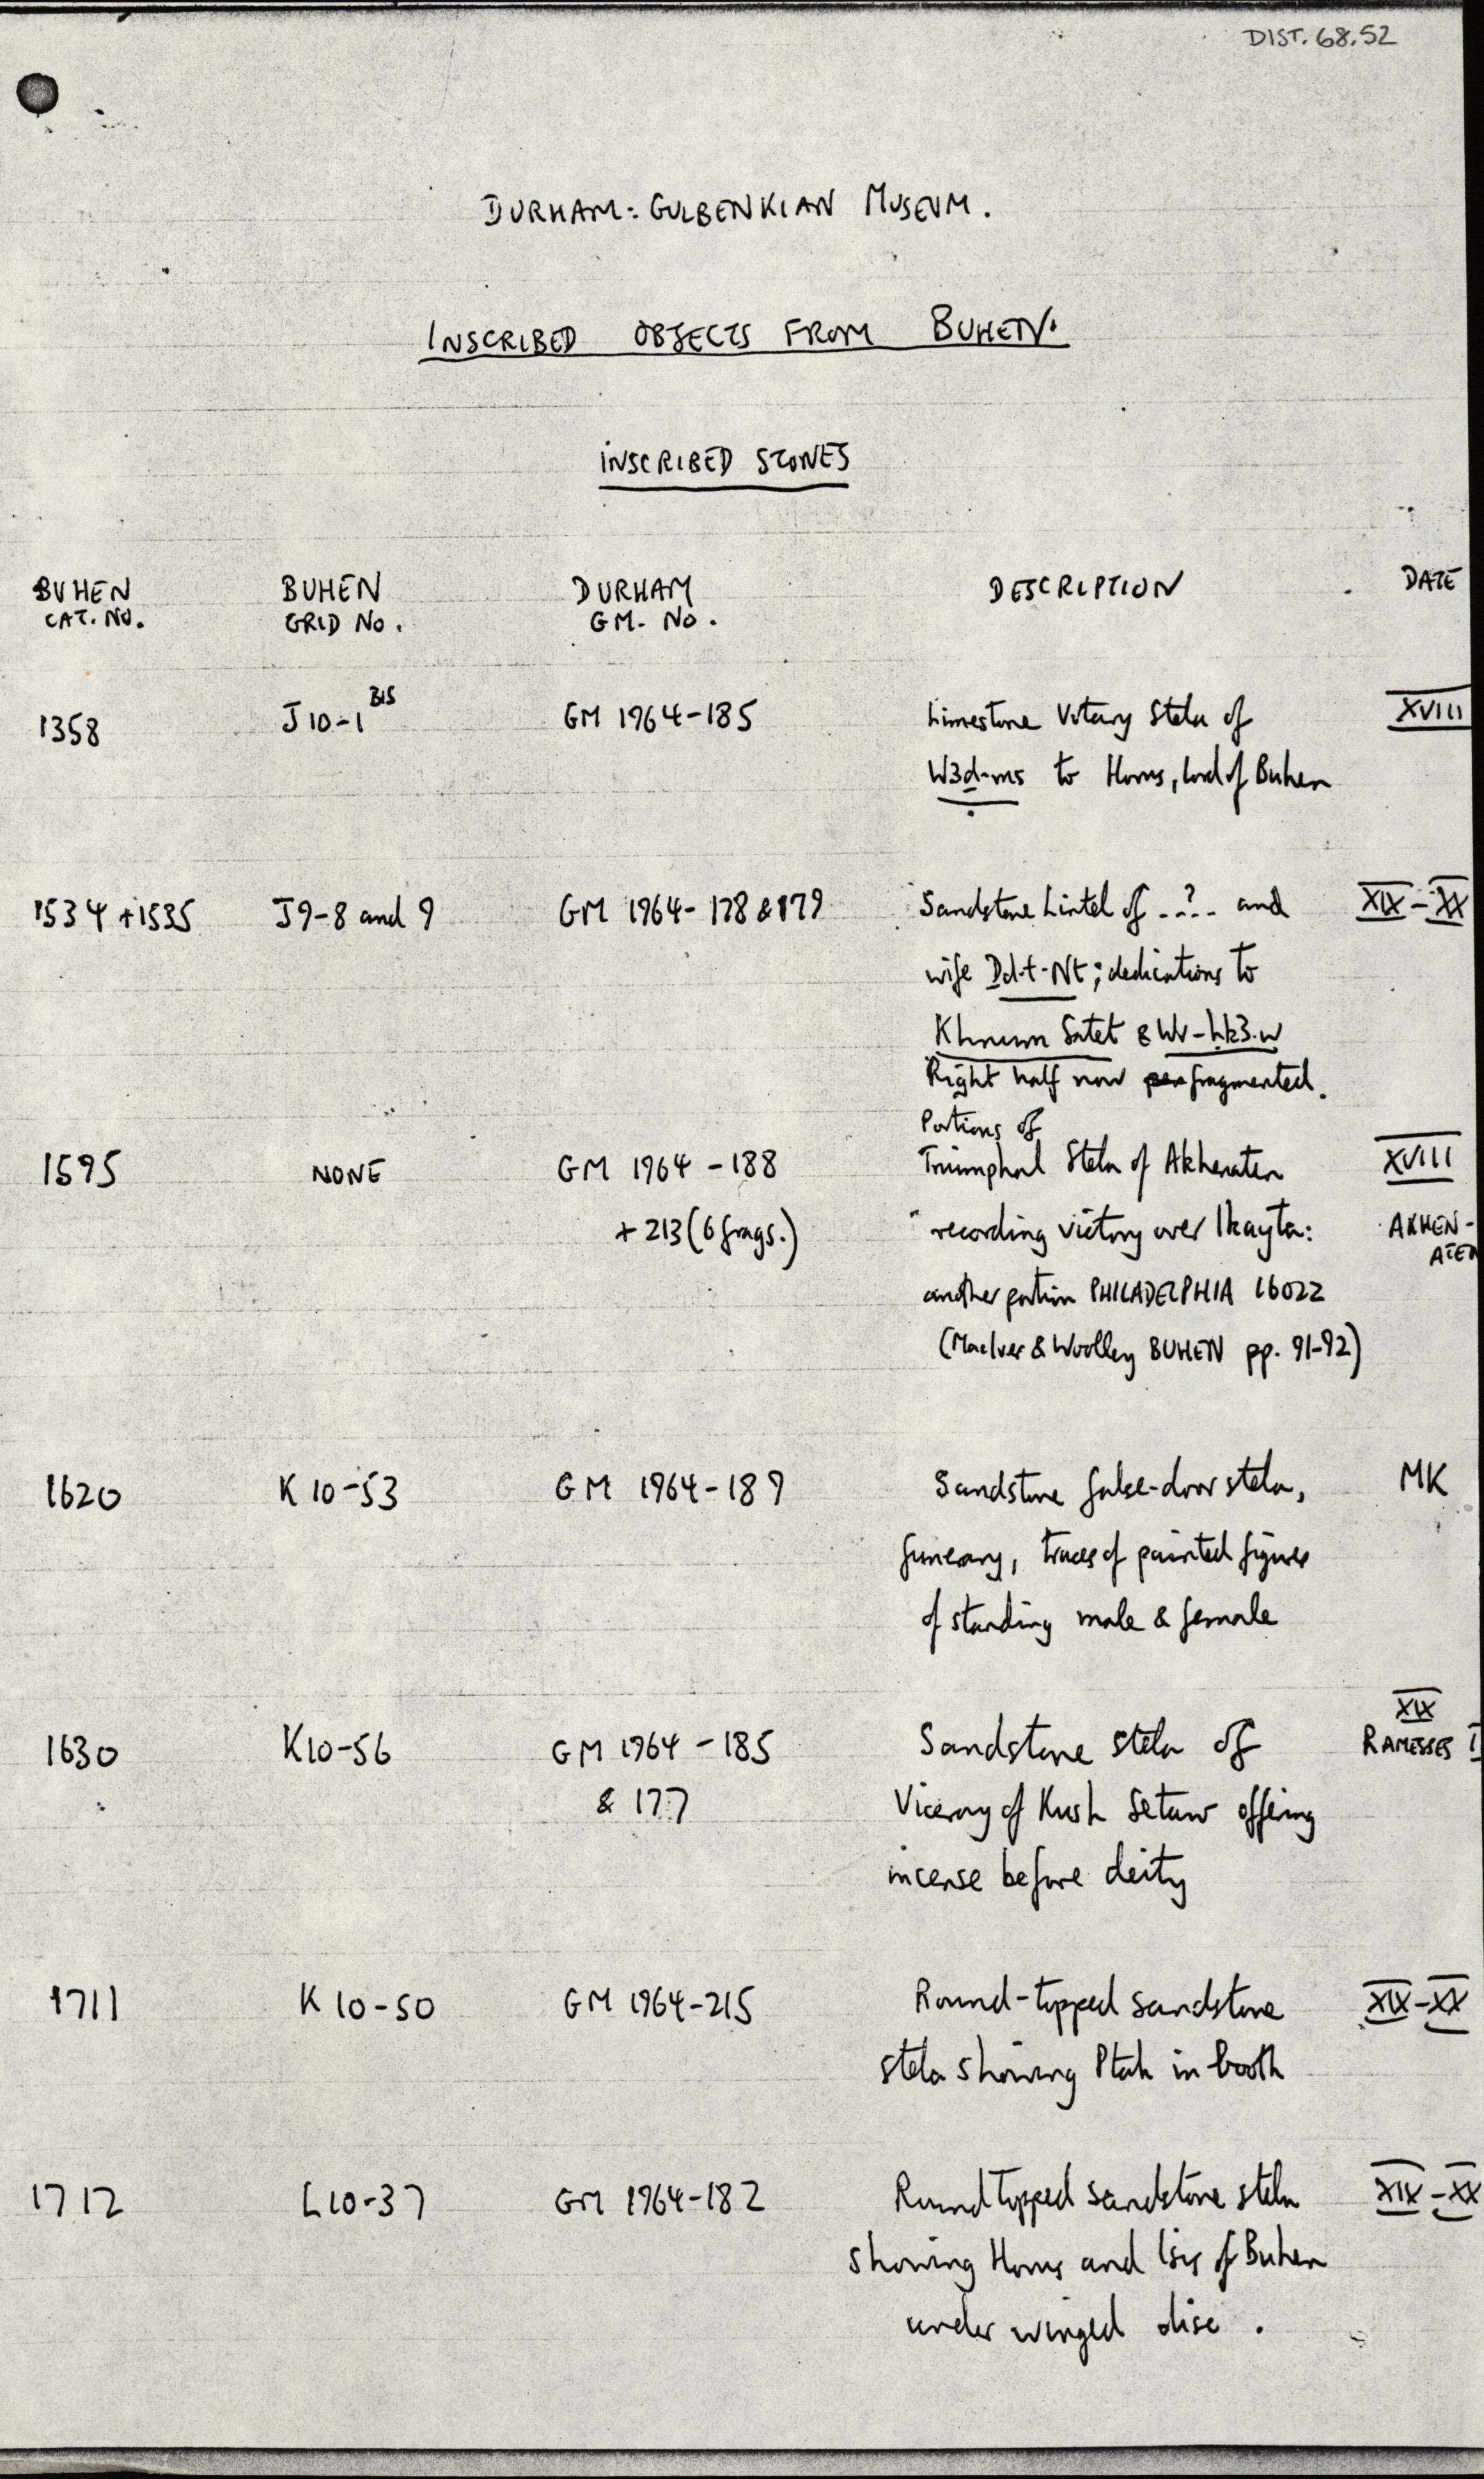 DIST. 68.52
DURHAM: GULBENKIAN MUSEUM.
INSCRIBED OBJECTS FROM BUHEN.
INSCRIBED STONES
BUHEN BUHEN DURHAM DESCRIPTION DATE
CAT. NO. GRID NO. GM. NO.
1358 J10-1 BIS GM 1964-185 Limestone Votary Stela of XVIII
W3ḏ-ms to Horus, lord of Buhen
1534+1535 J9-8 and 9 GM 1964-178&179 Sandstone Lintel of --?-- and XIX-XX
wife Ḏd-t-Nt; dedications to
Khnum Satet & Wr-ḥk3.w
Right half now fragmented.
Portions of
1595 NONE GM 1964-188 Triumphal Stela of Akhenaten XVIII
+213 (6 frags.) recording victory over Ikayta: AKHEN-
ATEN
another portion PHILADELPHIA 16022
(MacIver & Woolley BUHEN pp. 91-92)
1620 K10-53 GM 1964-189 Sandstone false-door stela, MK
funerary, traces of painted figures
of standing male & female
XIX
1630 K10-56 GM 1964-185 Sandstone stela of RAMESSES
& 177 Viceroy of Kush Setaw offering
incense before deity
1711 K10-50 GM 1964-215 Round-topped sandstone XIX-XX
stela showing Ptah in booth
1712 L10-37 GM 1964-182 Round topped sandstone stela XIX-XX
showing Horus and Isis of Buhen
under winged disc.